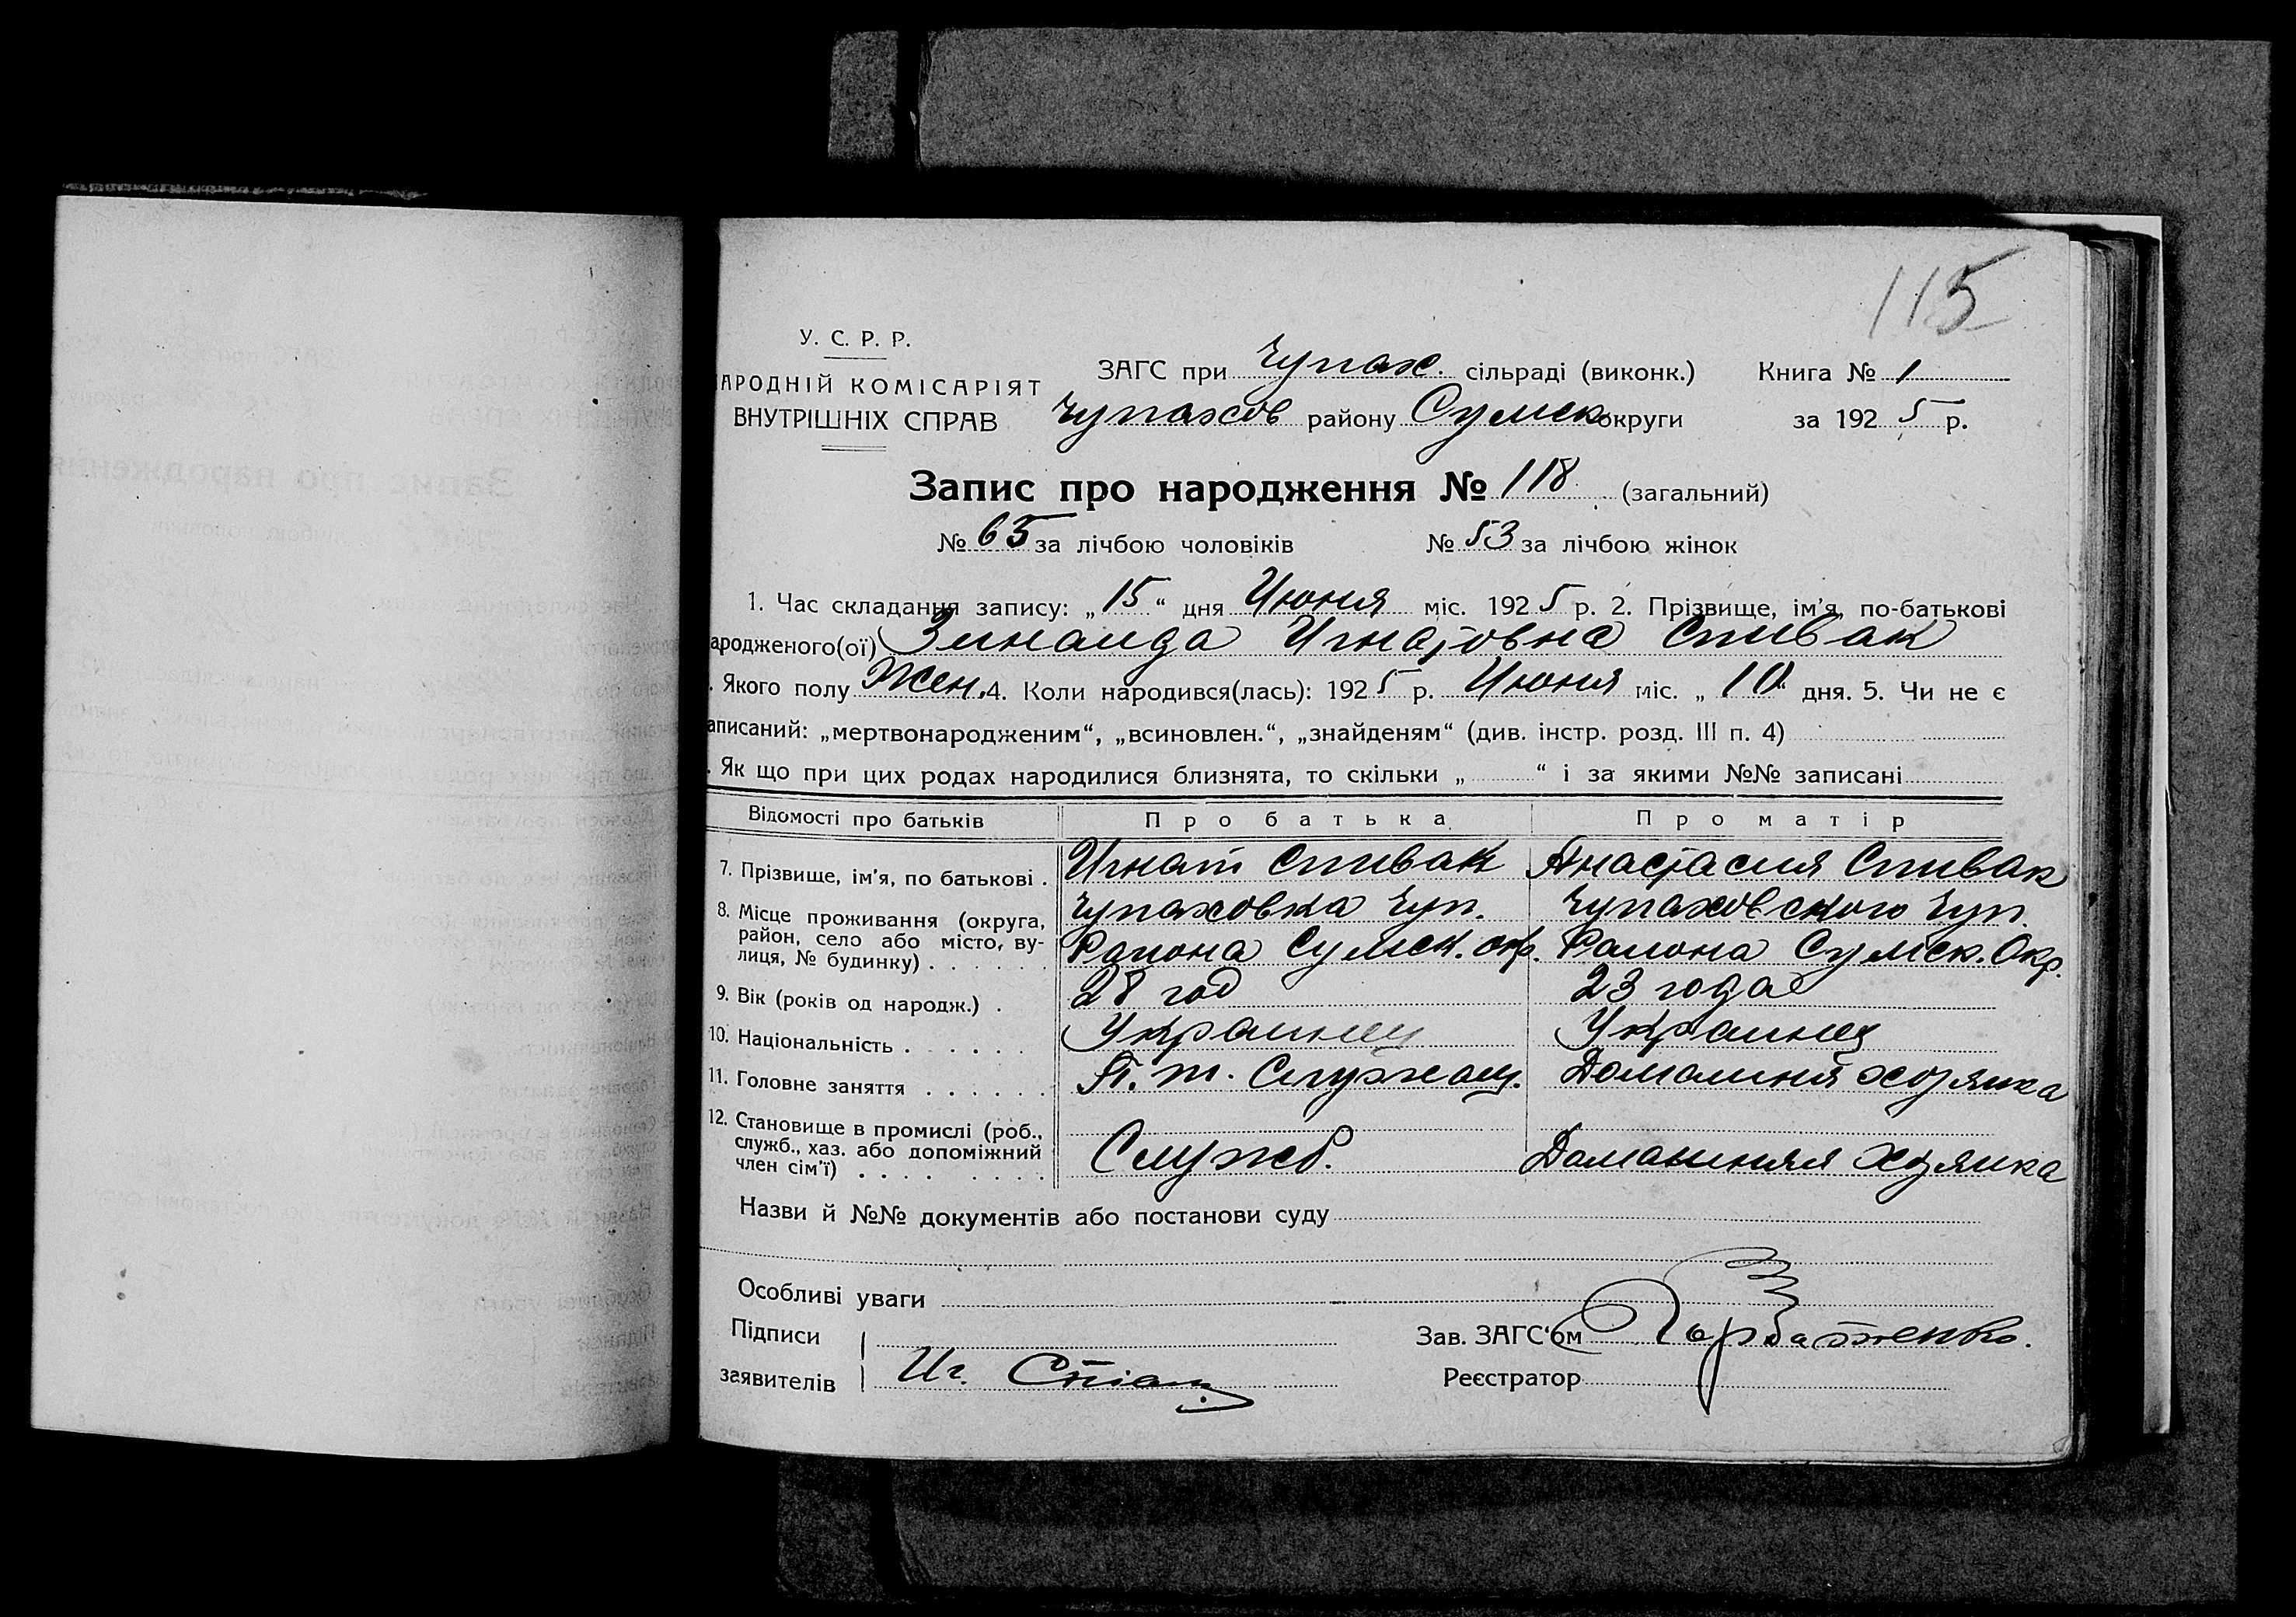 115
У. С. Р. Р.
АРОДНІЙ КОМІСАРІЯТ
ВНУТРІШНІХ СПРАВ
ЗАГС при Чупах. сільраді (виконк.) Книга № 1
Чупахов району Сумск округи за 1925 р.
Запис про народження № 118 (загальний)
№ 65 за лічбою чоловіків № 53 за лічбою жінок
1. Час складання запису: „15“ дня Июня міс. 1925 р. 2. Прізвище, ім'я, по-батькові
ародженого(ої) Зинаида Игнатовна Спивак
. Якого полу Жен. 4. Коли народився(лась): 1925 р. Июня міс. „10“ дня. 5. Чи не є
аписаний: „мертвонародженим“, „всиновлен.“, „знайденям“ (див. інстр. розд. III п. 4)
. Як що при цих родах народилися близнята, то скільки „ “ і за якими №№ записані
Відомості про батьків Про батька Про матір
7. Прізвище, ім'я, по батькові . Игнат Спивак Анастасия Спивак
8. Місце проживання (округа, район, село або місто, ву-лиця, № будинку) . . . . . . Чупаховка Чуп. Района Сумск. окр. Чупаховского Чуп. Района Сумск. Окр.
9. Вік (років од народж.) . 28 год 23 года
10. Національність . . . . . . Украинец Украинец
11. Головне заняття . . . . . . П. т. Служащ. Домашняя хозяика
12. Становище в промислі (роб., служб., хаз. або допоміжний член сім'ї) . . . . . . . . Служб. Домашняя хозяика
Назви й №№ документів або постанови суду
Особливі уваги
Підписи
заявителів Иг. Співак
Зав. ЗАГС'ом Горбатенко.
Реєстратор